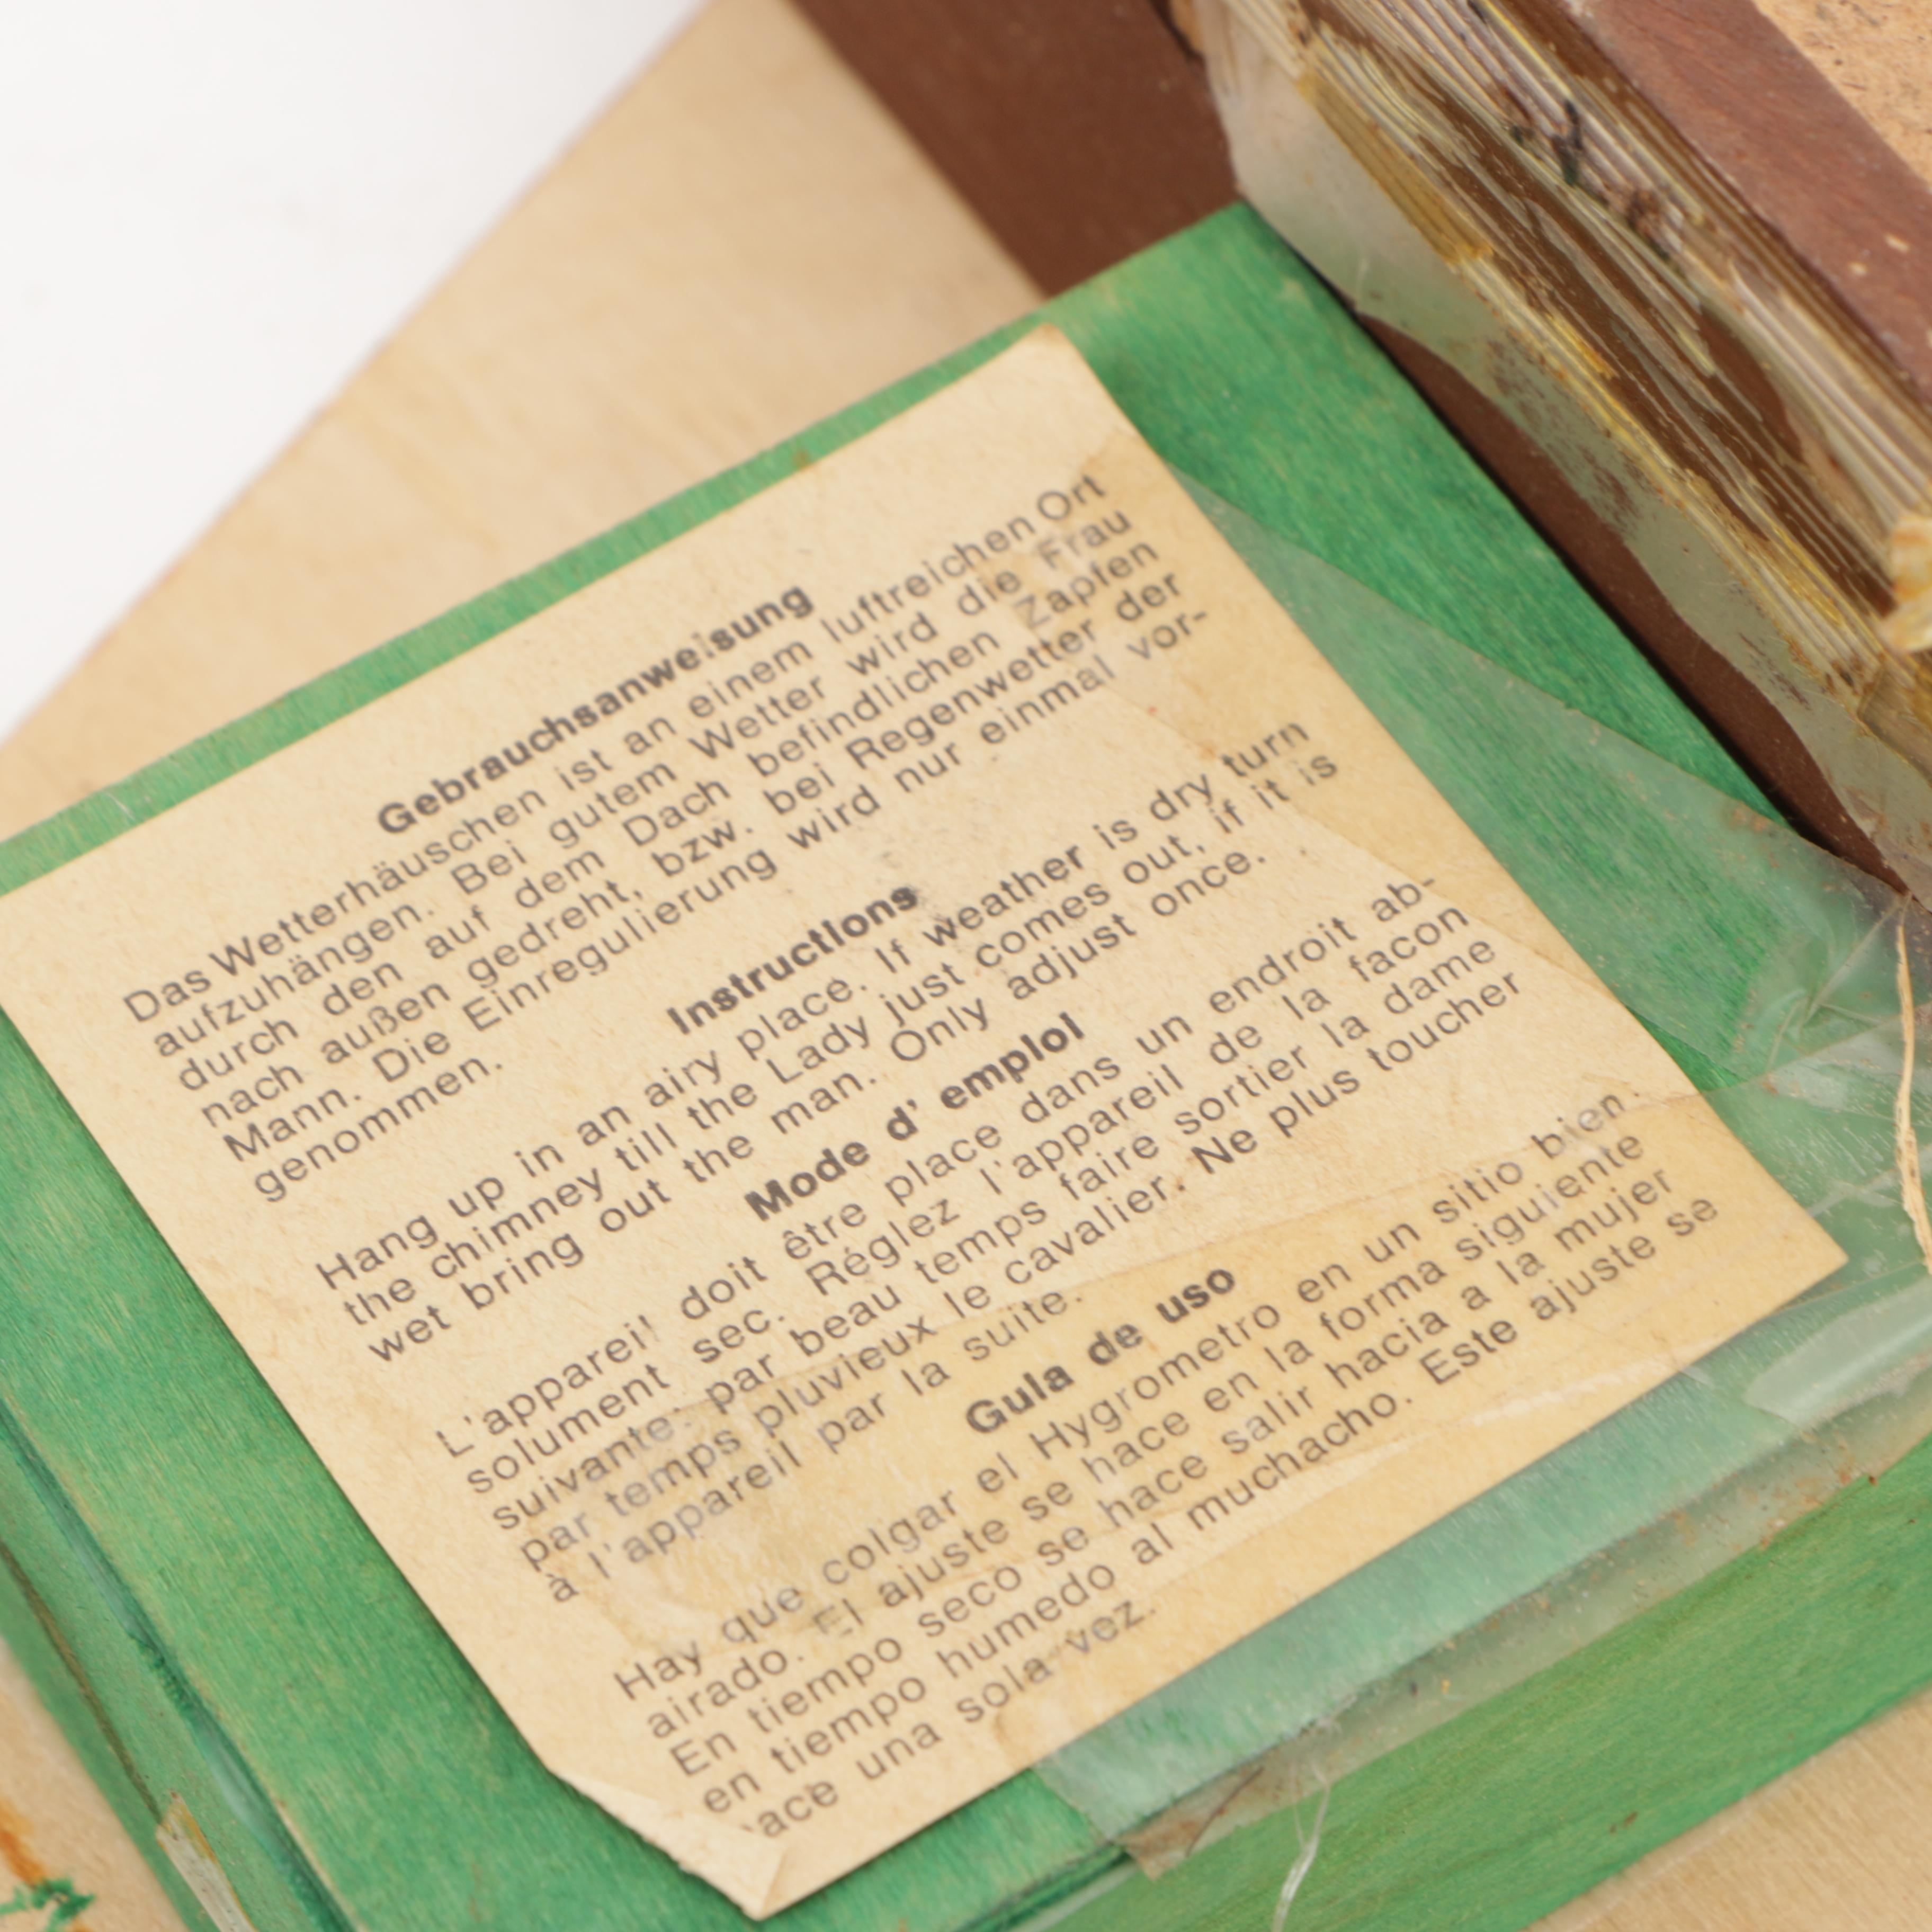 Gebrauchsanweisung
Das Wetterhäuschen ist an einem luftreichen Ort
aufzuhängen. Bei gutem Wetter wird die Frau
durch den auf dem Dach befindlichen Zapfen
nach außen gedreht, bzw. bei Regenwetter der
Mann. Die Einregulierung wird nur einmal vor-
genommen.
Instructions
Hang up in an airy place. If weather is dry turn
the chimney till the Lady just comes out, if it is
wet bring out the man. Only adjust once.
Mode d' emploI
L'appareil doit être place dans un endroit ab-
solument sec. Réglez l'appareil de la facon
suivante: par beau temps faire sortier la dame
par temps pluvieux le cavalier. Ne plus toucher
à l'appareil par la suite.
Guia de uso
Hay que colgar el Hygrometro en un sitio bien.
airado. El ajuste se hace en la forma siguiente
En tiempo seco se hace salir hacia a la mujer
en tiempo humedo al muchacho. Este ajuste se
ace una sola vez.